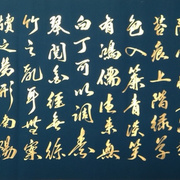 苔痕上階綠草
色入簾青談笑
有鴻儒往來無
白丁可以調素
琴閱金經無絲
竹之亂耳無案
牘之勞形南陽